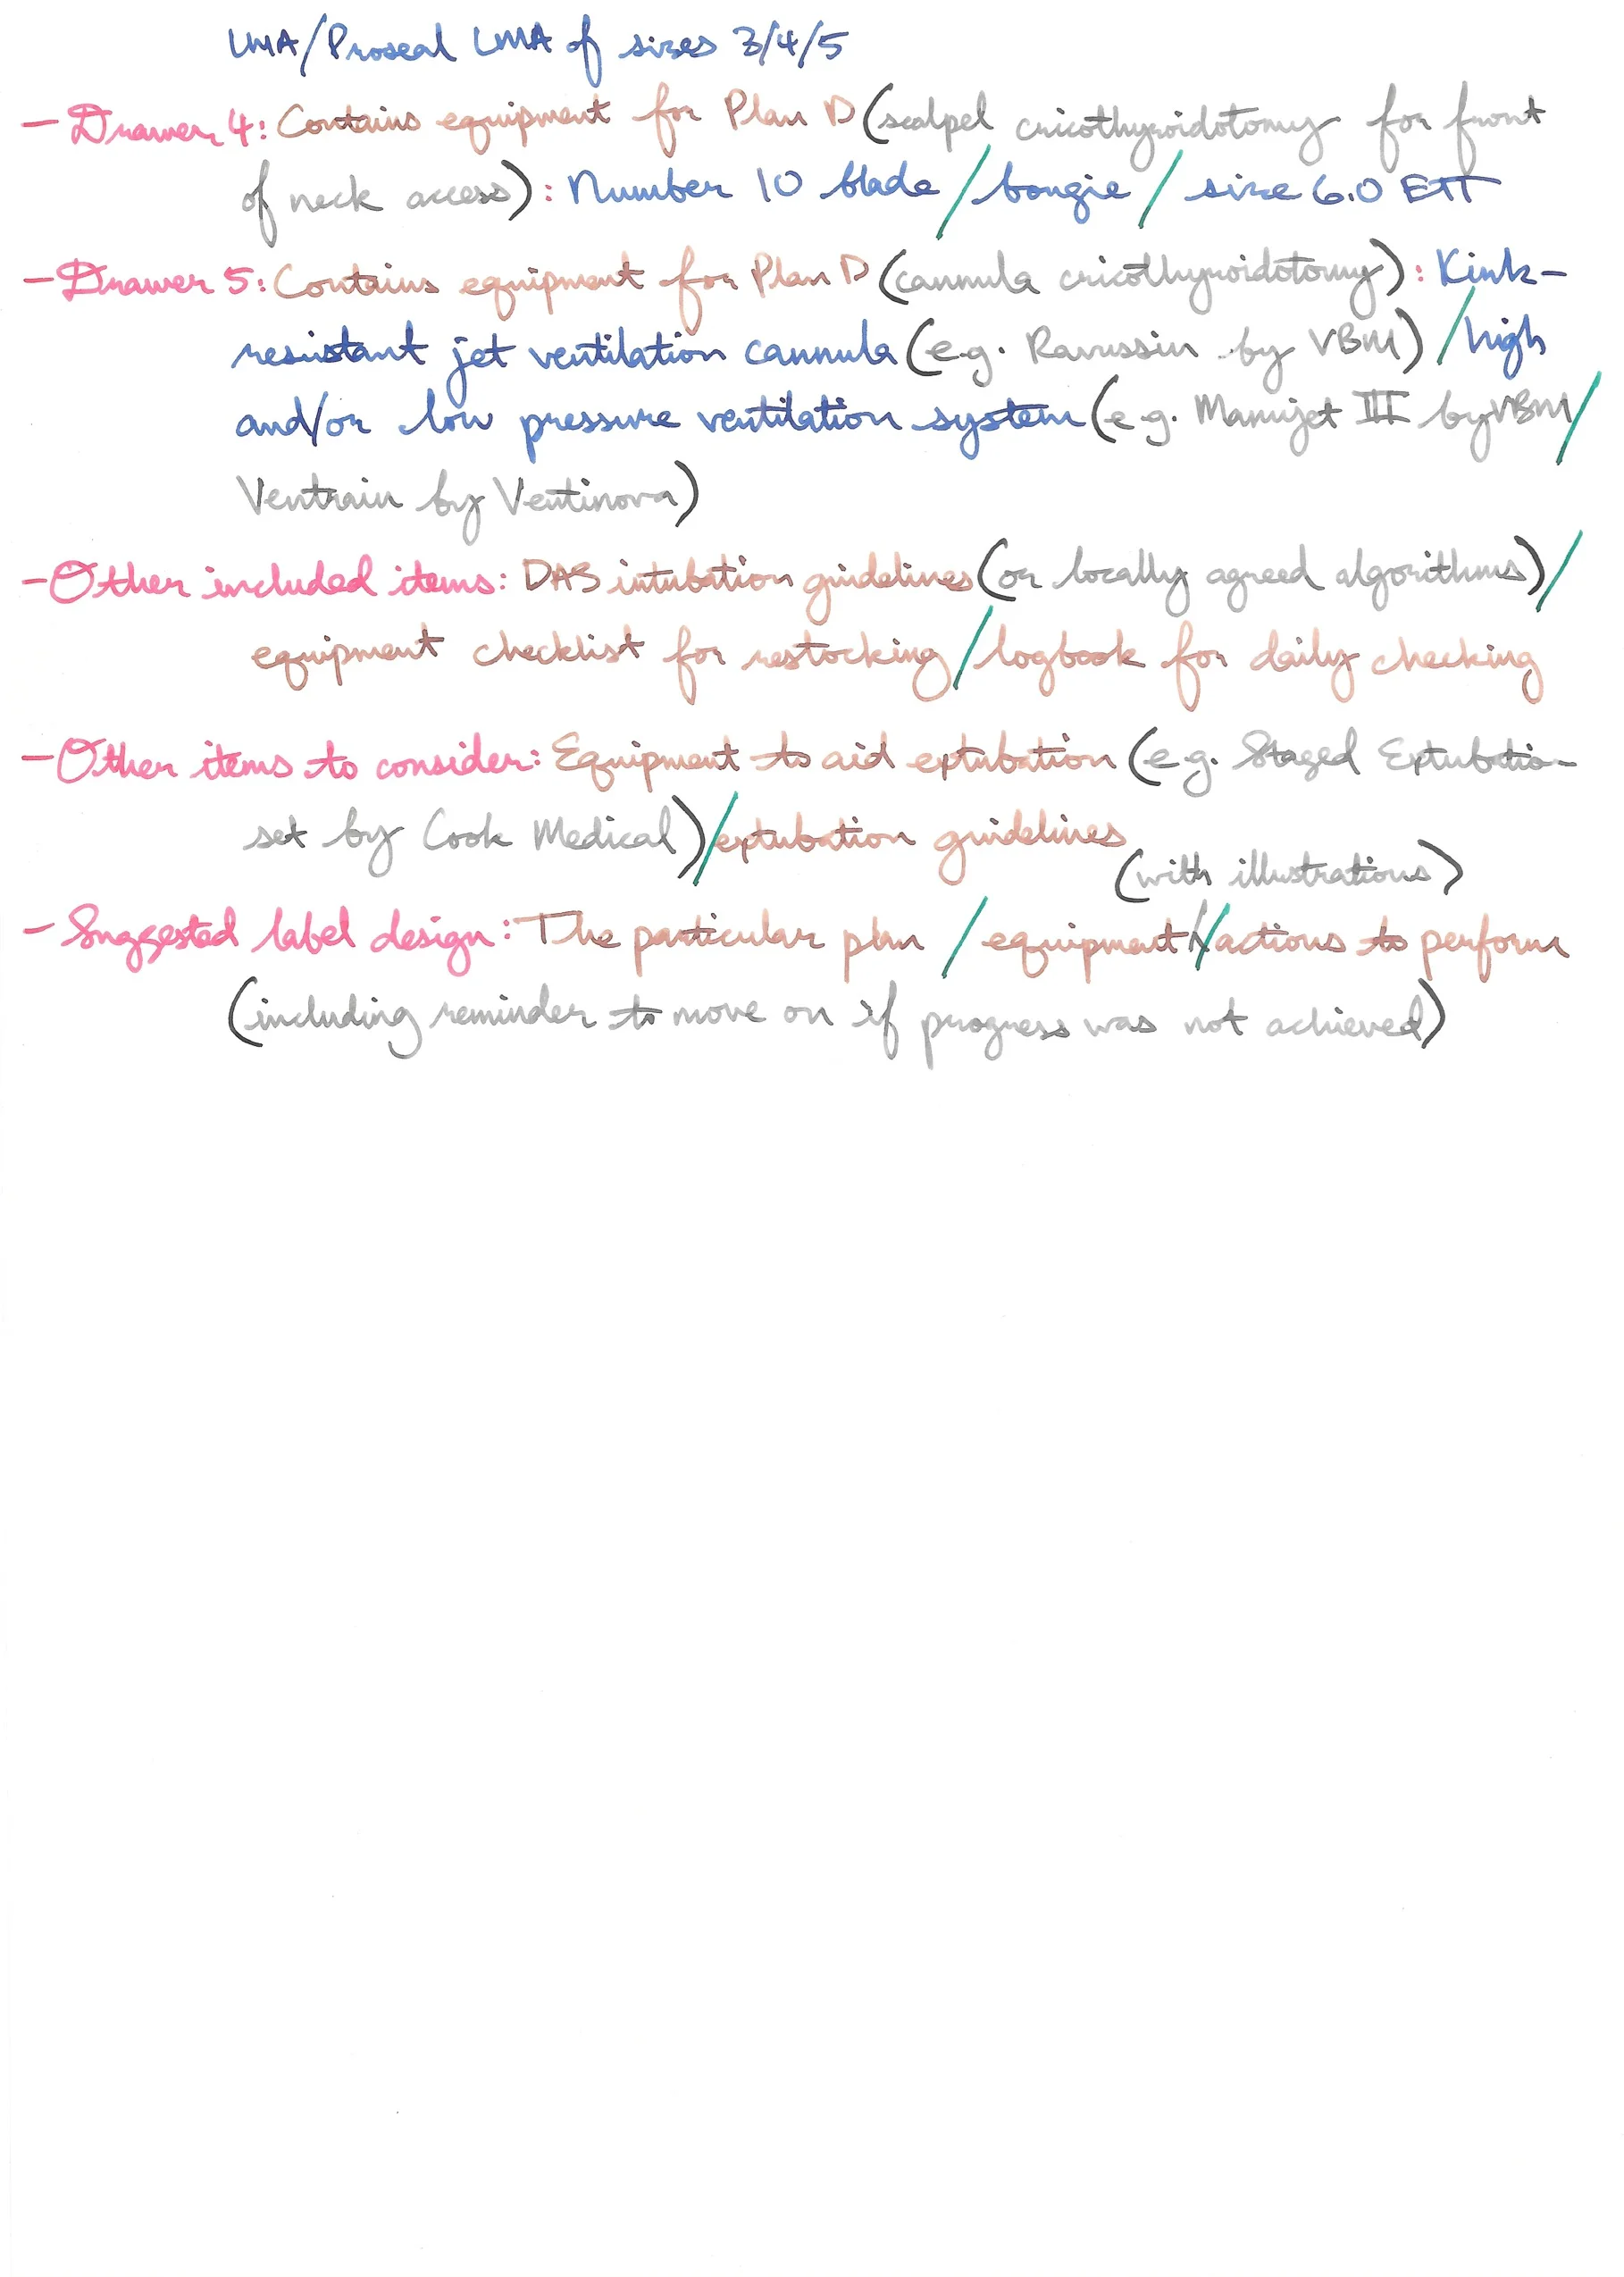 LMA/Proseal LMA of sizes 3/4/5
- Drawer 4: Contains equipment for Plan D (scalpel cricothyroidotomy for front
of neck access): Number 10 blade / bougie / size 6.0 ETT
- Drawer 5: Contains equipment for Plan D (cannula cricothyroidotomy): Kink-
resistant jet ventilation cannula (e.g. Ravussin by VBM) / high
and/or low pressure ventilation system (e.g. Manujet III by VBM /
Ventrain by Ventinova)
- Other included items: DAS intubation guidelines (or locally agreed algorithms) /
equipment checklist for restocking / logbook for daily checking
- Other items to consider: Equipment to aid extubation (e.g. Staged Extubation
set by Cook Medical) / extubation guidelines
(with illustrations)
- Suggested label design: The particular plan / equipment / actions to perform
(including reminder to move on if progress was not achieved)